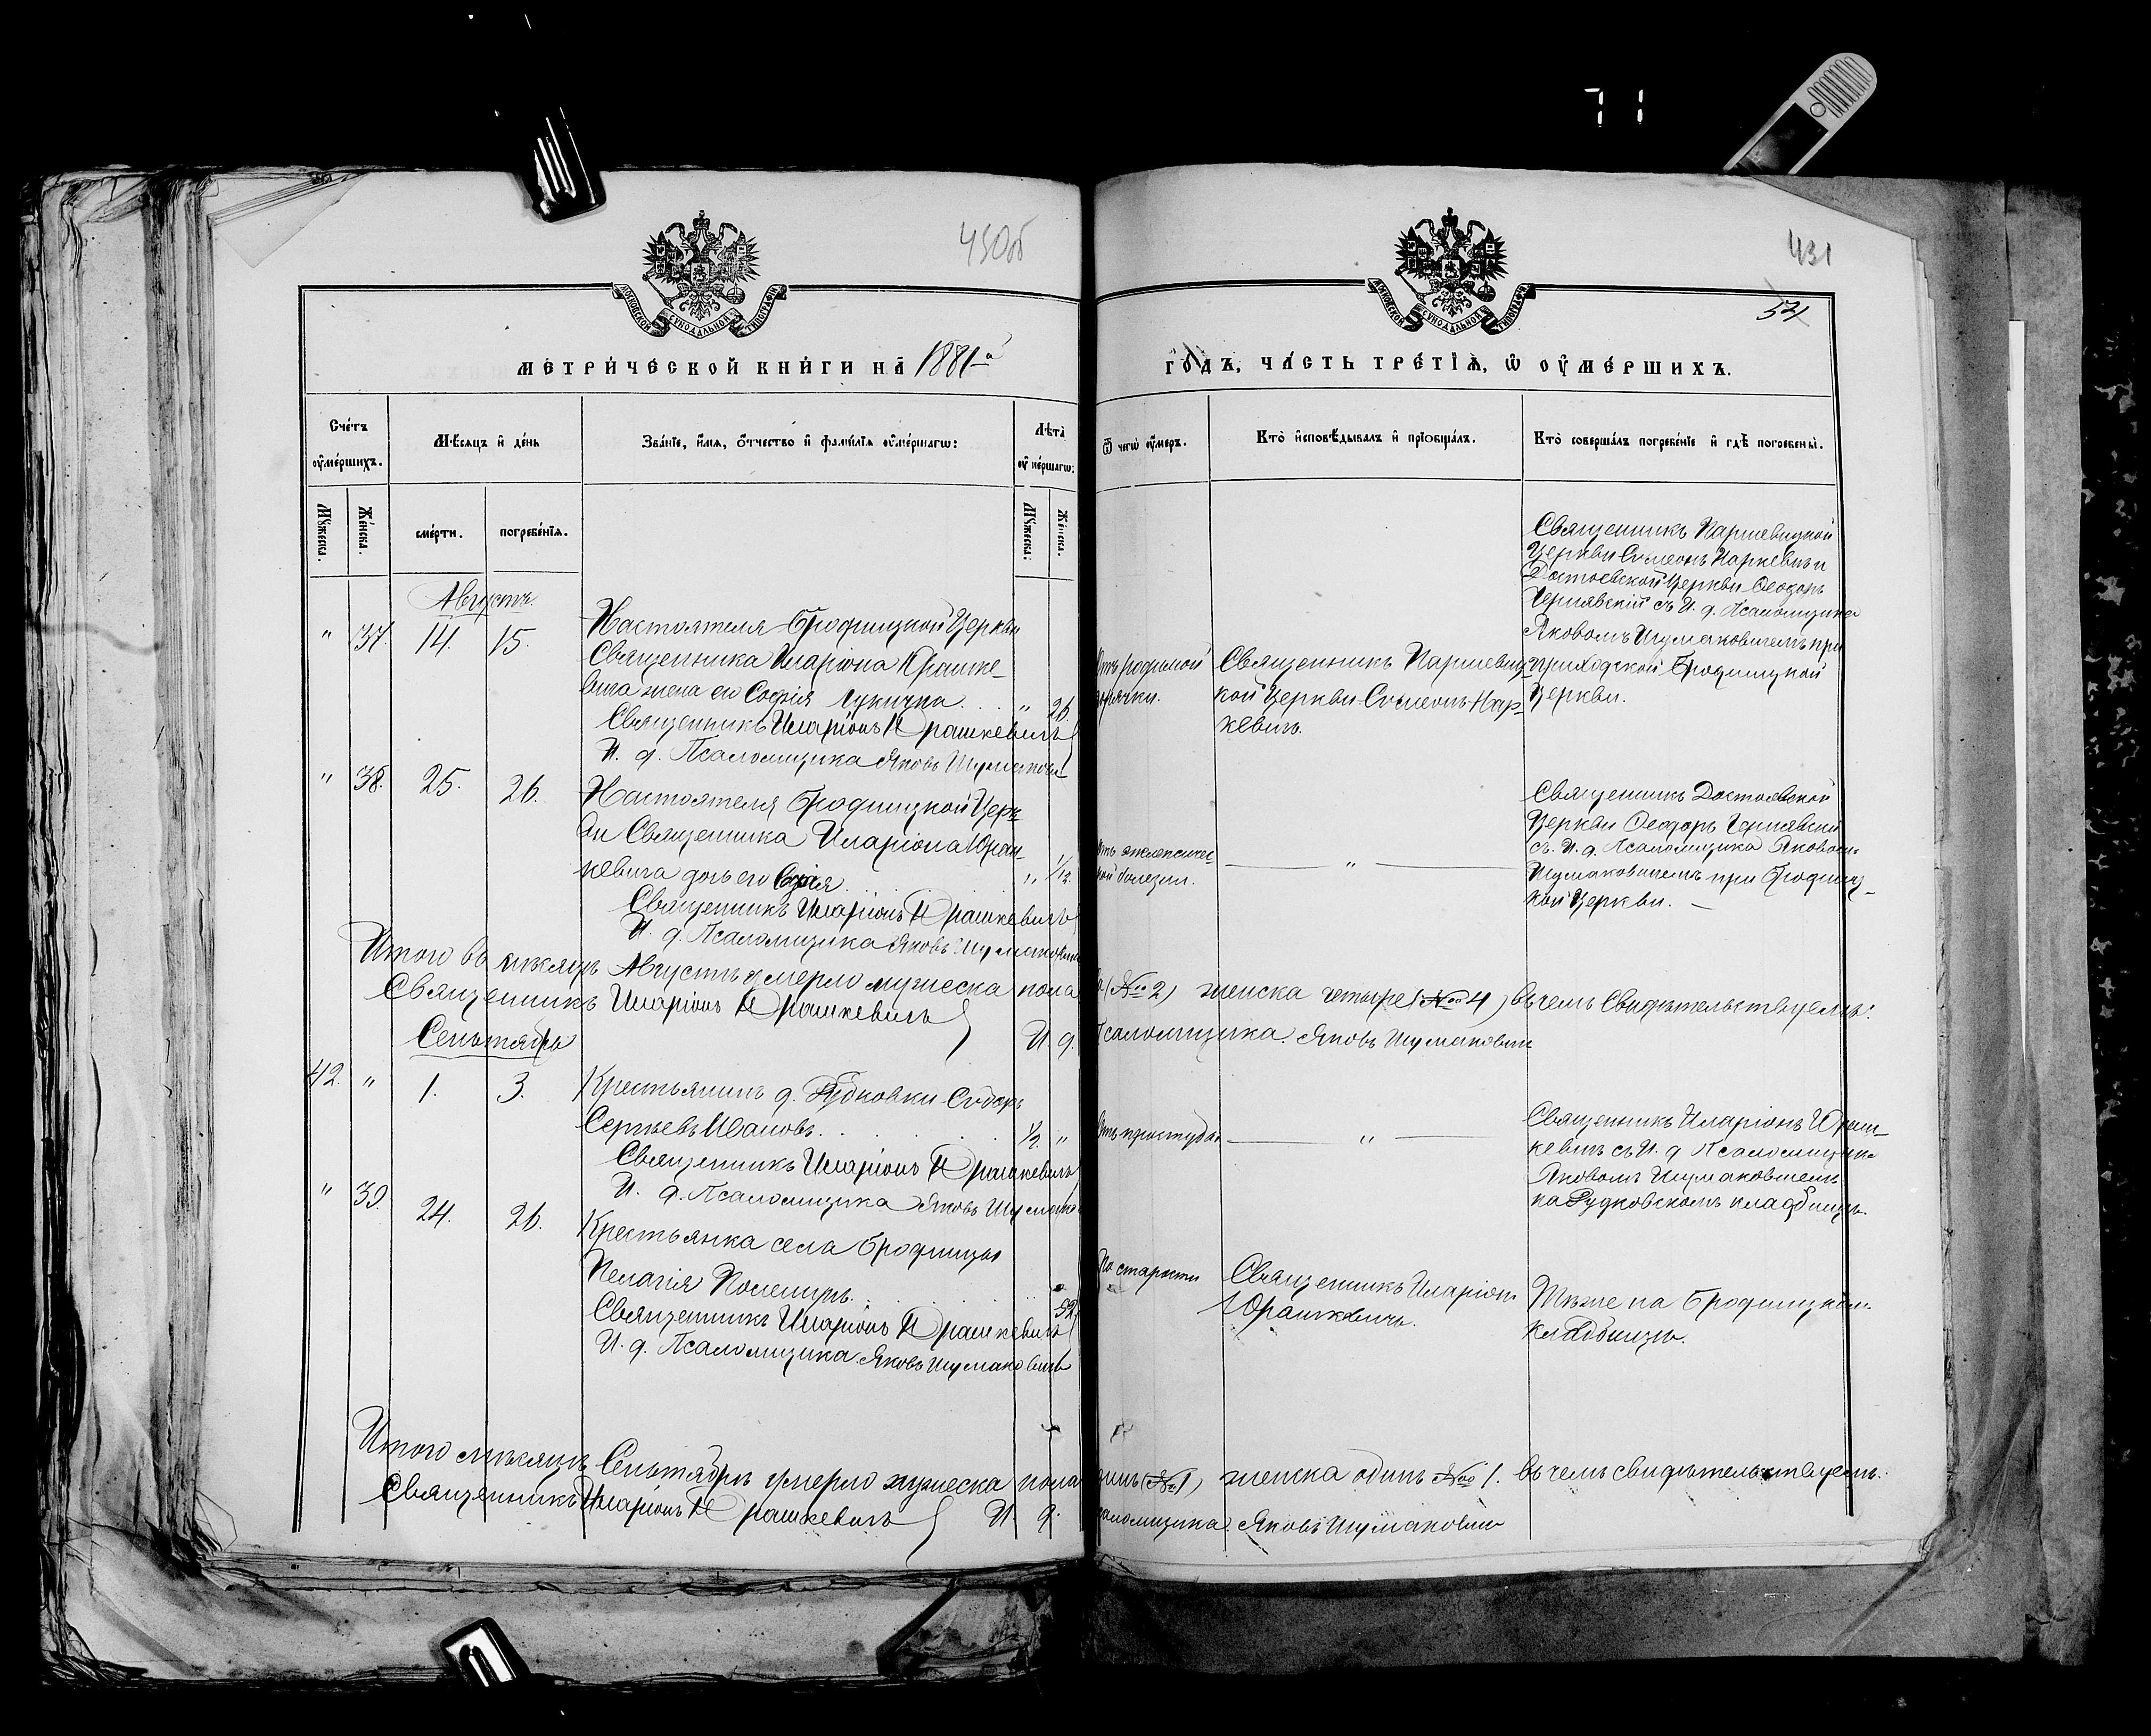 71
430об
431
МОСКОВСКОЙ СѴНОДАЛЬНОЙ ТИПОГРАФІИ
МОСКОВСКОЙ СѴНОДАЛЬНОЙ ТИПОГРАФІИ
МЕТРИ́ЧЕСКОЙ КНИ́ГИ НА̀ 1881й
ГО́ДЪ, ЧА́СТЬ ТРЕ́ТІѦ, Ѿ ОУ҆МЕ́РШИХЪ.
Сче́тъ оу҆ме́ршихъ.
Мѣ́сяцъ и҆ де́нь
Зва́нїе, и҆́мя, ѻ҆́тчество и҆ фами́лїя оу҆ме́ршагѡ:
Лѣ́та оу҆ме́ршагѡ:
Ѿ чегѡ̀ оу҆́меръ.
Кто̀ и҆сповѣ́дывалъ и҆ прїѻбща́лъ.
Кто̀ соверша́лъ погребе́нїе и҆ гдѣ̀ погребены̀.
Мꙋ́жеска.
Же́нска.
сме́рти.
погребе́нїя.
Мꙋ́жеска.
Же́нска.
Августъ.
" 37. 14. 15.
Настоятеля Бродницкой Церкви
Священника Иларіона Юрашке-
вича жена его Софія Лукична . . . " 26.
Священникъ Иларіонъ Юрашкевичъ
И. д. Псаломщика Яковъ Шумакови
Отъ родимой
горячки.
Священникъ Паршевиц-
кой Церкви Сѵмеонъ Нар-
кевичъ.
Священникъ Паршевицкой
Церкви Сѵмеонъ Наркевичъ и
Достоевской Церкви Ѳеодоръ
Чернявскій съ И. д. Псаломщика
Яковомъ Шумаковичемъ при
приходской Бродницкой
Церкви.
" 38. 25. 26.
Настоятеля Бродницкой Церк-
ви Священника Иларіона Юраш-
кевича дочь его Софія . . . " 1/12.
Священникъ Иларіонъ Юрашкевичъ
И. д. Псаломщика Яковъ Шумакович
отъ эклепсичес-
кой болезни.
"
Священникъ Достоевской
Церкви Ѳеодоръ Чернявскій
съ И. д. Псаломщика Яковомъ
Шумаковичемъ при Бродниц-
кой Церкви. —
Итого въ мѣсяцѣ Августѣ умерло мужеска пола два (№ 2) женска четыре (№ 4) въ чемъ Свидѣтельствуемъ:
Священникъ Иларіонъ Юрашкевичъ И. д. Псаломщика Яковъ Шумакович
Сентябрь
42. " 1. 3.
Крестьянинъ д. Рудковки Сидоръ
Сергѣевъ Ивановъ. . . . 1/2 "
Священникъ Иларіонъ Юрашкевичъ
И. д. Псаломщика Яковъ Шумако
Отъ простуды
"
Священникъ Иларіонъ Юраш-
кевичъ съ И. д Псаломщика
Яковомъ Шумаковичемъ
на Рудковскомъ кладбищѣ.
" 39. 24. 26.
Крестьянка села Бродницы
Пелагія Полещукъ. . . . 52
Священникъ Иларіонъ Юрашкевичъ
И. д. Псаломщика Яковъ Шумаковичъ
По старости
Священникъ Иларіонъ
Юрашкевичъ.
Тѣже на Бродницкомъ
кладбищѣ.
Итого мѣсяцѣ Сентябрѣ умерло мужеска пола одинъ (№ 1) женска одинъ № 1. въ чемъ свидѣтельствуемъ:
Священникъ Иларіонъ Юрашкевичъ И. д. Псаломщика Яковъ Шумакович